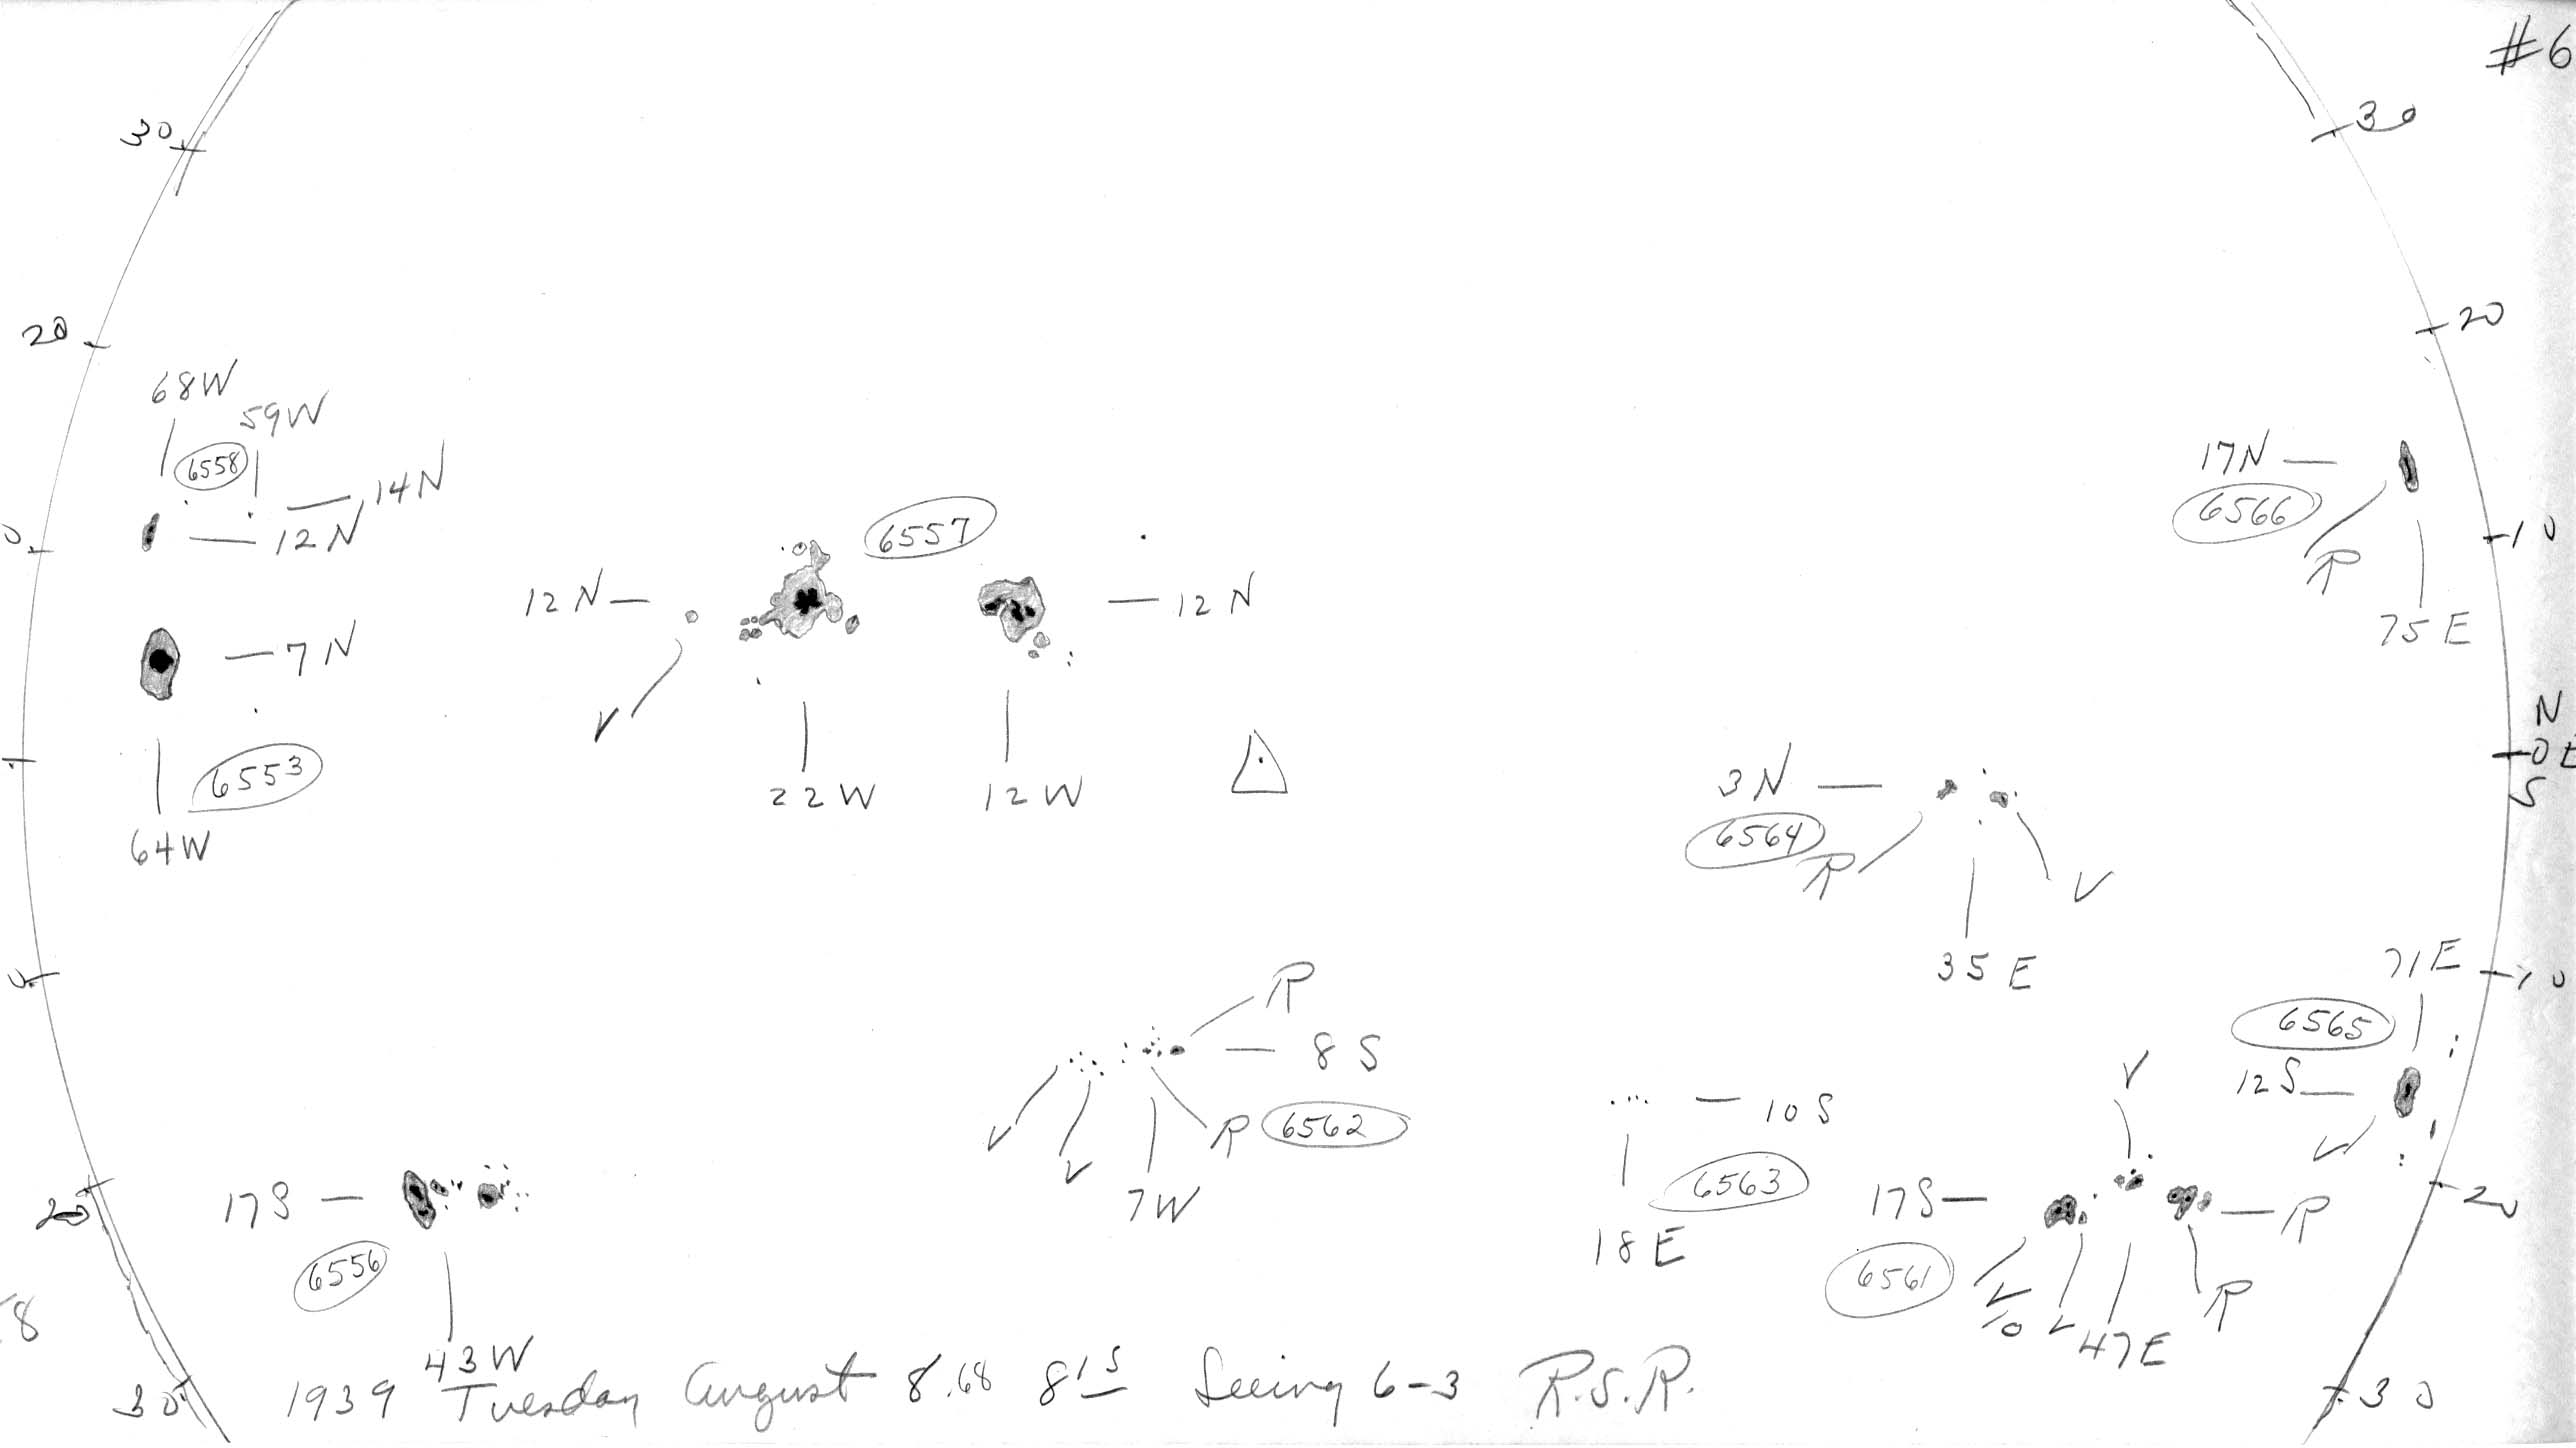 #6
30
30
20
20
68W
59W
6558
14N
12N
17N
6566
R
75E
10
6557
12N
12N
V
22W
12W
7N
6553
64W
N
0 E
S
3N
6564
R
V
35E
R
8S
V
V
R
6562
7W
10S
6563
18E
71E
10
6565
12S
V
V
17S
R
6561
V
V
47E
R
20
17S
6556
43W
20
30
30
1939 Tuesday August 8.68 Seeing 6-3 R.S.R.